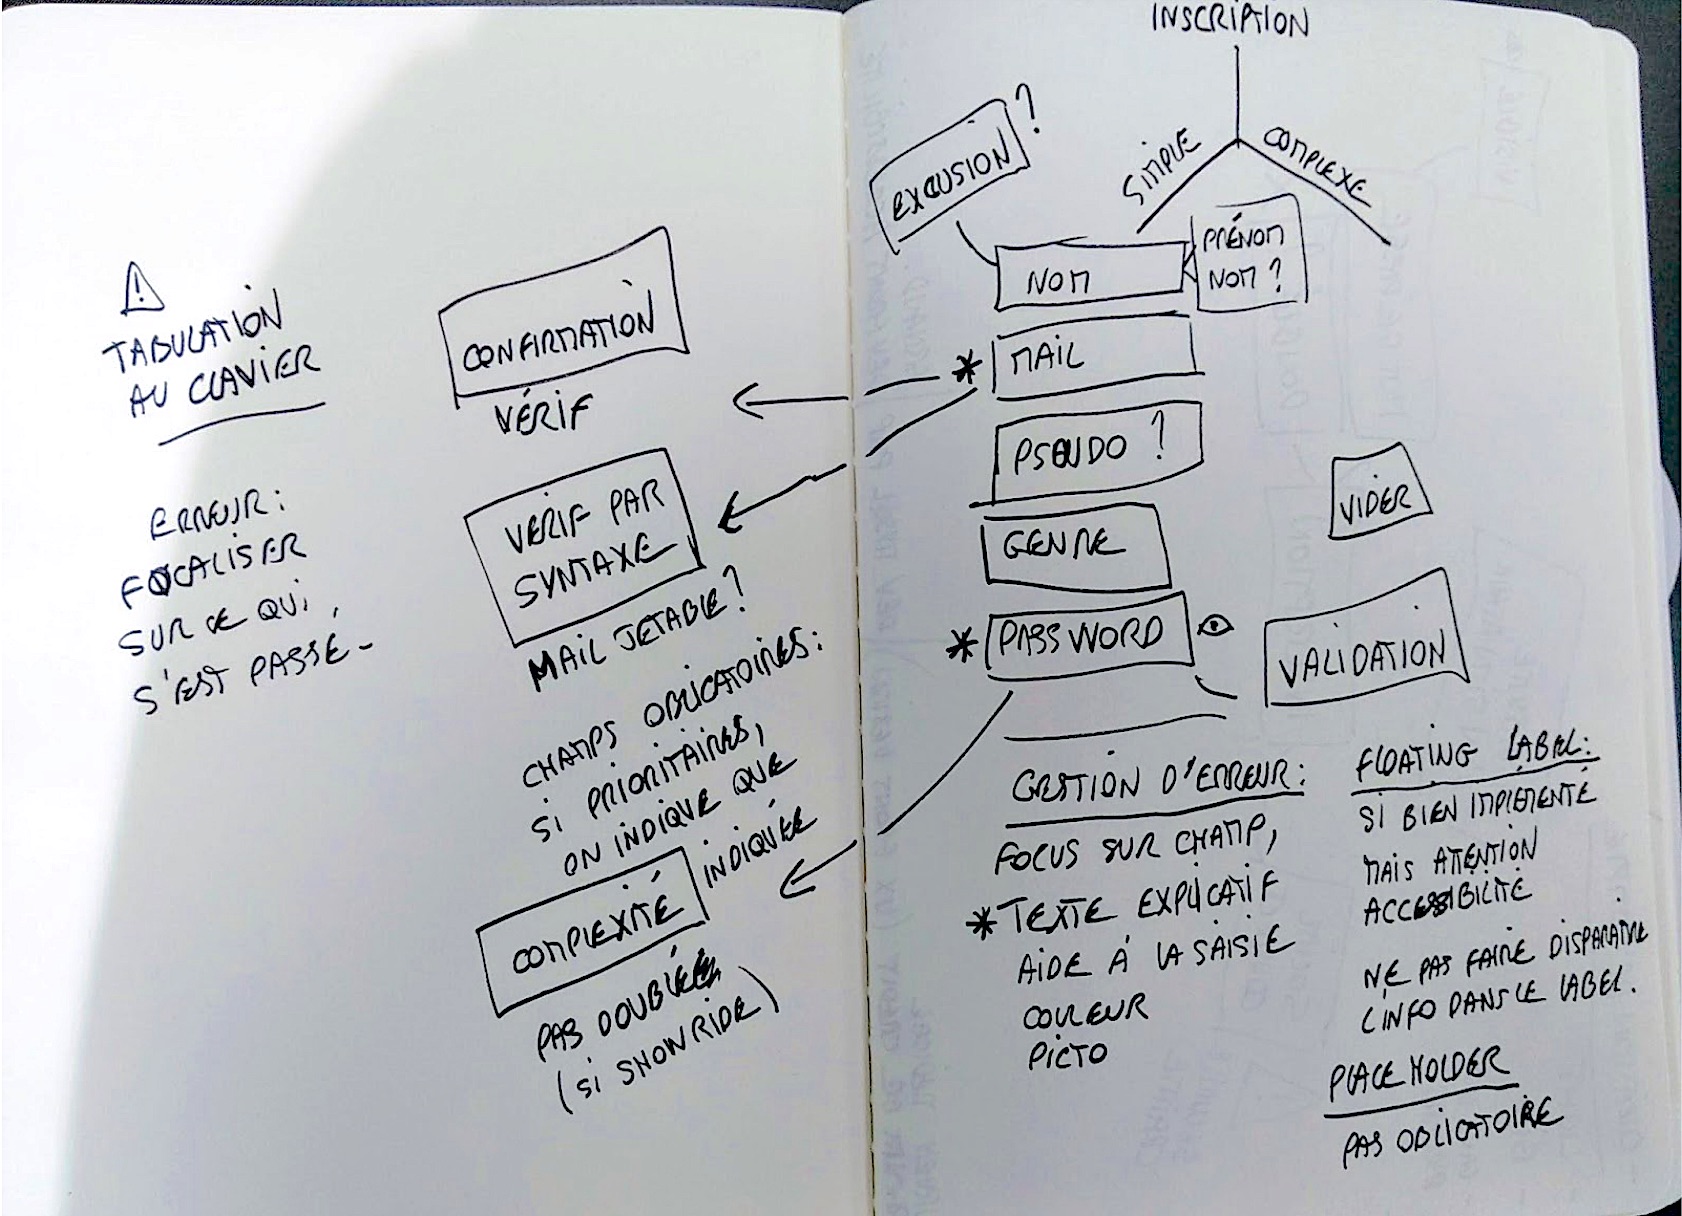 ⚠
TABULATION
AU CLAVIER
ERREUR :
FOCALISER
SUR CE QUI
S'EST PASSÉ.
CONFIRMATION
VÉRIF
VÉRIF PAR
SYNTAXE
MAIL JETABLE ?
CHAMPS OBLIGATOIRES :
SI PRIORITAIRES,
ON INDIQUE QUE
COMPLEXITÉ INDIQUÉE
PAS DOUBLÉE
(SI SHOWRIDE)
INSCRIPTION
SIMPLE COMPLEXE
EXCUSION ?
NOM
PRÉNOM
NOM ?
* MAIL
PSEUDO ?
GENRE
* PASSWORD
VIDER
VALIDATION
GESTION D'ERREUR :
FOCUS SUR CHAMP,
* TEXTE EXPLICATIF
AIDE À LA SAISIE
COULEUR
PICTO
FLOATING LABEL :
SI BIEN IMPLÉMENTÉ
MAIS ATTENTION
ACCESSIBILITÉ
NE PAS FAIRE DISPARAITRE
L'INFO DANS LE LABEL.
PLACE HOLDER
PAS OBLIGATOIRE